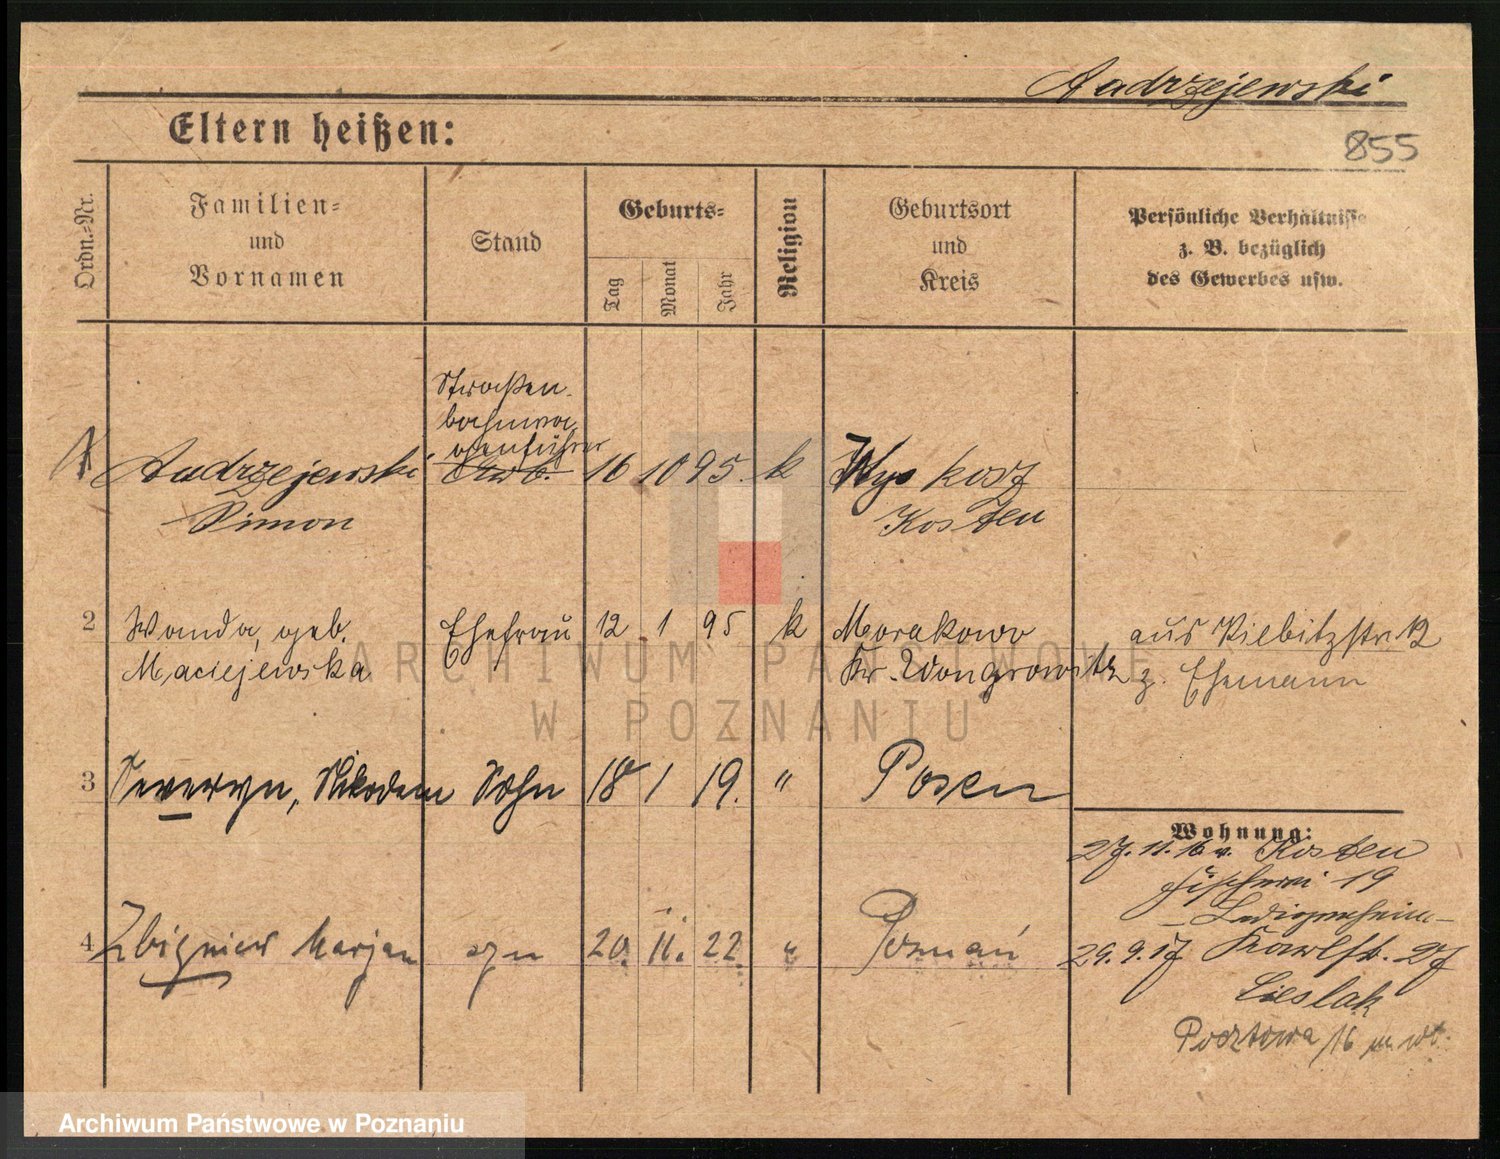 Andrzejewski
Eltern heißen:
855
Ordn.-Nr.
Familien-
und
Vornamen
Stand
Geburts-
Tag
Monat
Jahr
Religion
Geburtsort
und
Kreis
Persönliche Verhältnisse
z. B. bezüglich
des Gewerbes usw.
Straßen-
bahnwa-
genführer
Andrzejewski Arb. 16 10 95 k Wyskosz
Simon Kosten
2 Wanda, geb. Ehefrau 12 1 95 k Morakowo aus Kiebitzstr. 12
Maciejewska Kr. Wongrowitz z. Ehemann
3 Seweryn, Nikodem Sohn 18 1 19. " Posen
Wohnung:
27. 11. 16 v. Kosten
Fischerei 19
4 Zbigniew Marjan syn 20. 11. 22 " Poznań
29. 9. 17 Karlstr. 27
Cieslak
Pocztowa 16
ARCHIWUM PAŃSTWOWE
W POZNANIU
Archiwum Państwowe w Poznaniu